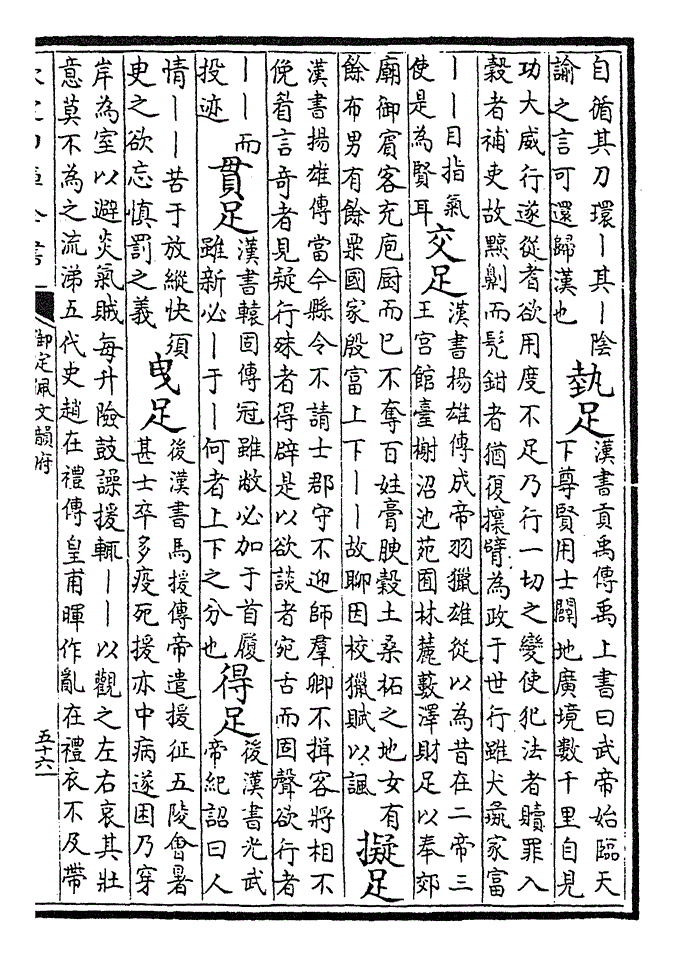 自循其刀環｜其｜陰
諭之言可還歸漢也
執足
漢書貢禹傳禹上書曰武帝始臨天
下尊賢用士闢地廣境數千里自見
功大威行遂從耆欲用度不足乃行一切之變使犯法者贖罪入
穀者補吏故黥劓而髠鉗者猶復攘臂為政于世行雖犬彘家富
｜｜目指氣
使是為賢耳
交足
漢書揚雄傳成帝羽獵雄從以為昔在二帝三
王宮館臺榭沼池苑囿林麓藪澤財足以奉郊
廟御賓客充庖厨而已不奪百姓膏腴穀土桑柘之地女有
餘布男有餘粟國家殷富上下｜｜故聊因校獵賦以諷
擬足
漢書揚雄傳當今縣令不請士郡守不迎師羣卿不揖客將相不
俛眉言奇者見疑行殊者得辟是以欲談者宛古而固聲欲行者
｜｜而
投迹
貫足
漢書轅固傳冠雖敝必加于首履
雖新必｜于｜何者上下之分也
得足
後漢書光武
帝紀詔曰人
情｜｜苦于放縱快須
吏之欲忘慎罰之義
曳足
後漢書馬援傳帝遣援征五陵會暑
甚士卒多疫死援亦中病遂困乃穿
岸為室以避炎氣賊每升險鼓譟援輒｜｜以觀之左右哀其壯
意莫不為之流涕五代史趙在禮傳皇甫暉作亂在禮衣不及帶
御定佩文韻府
五十六